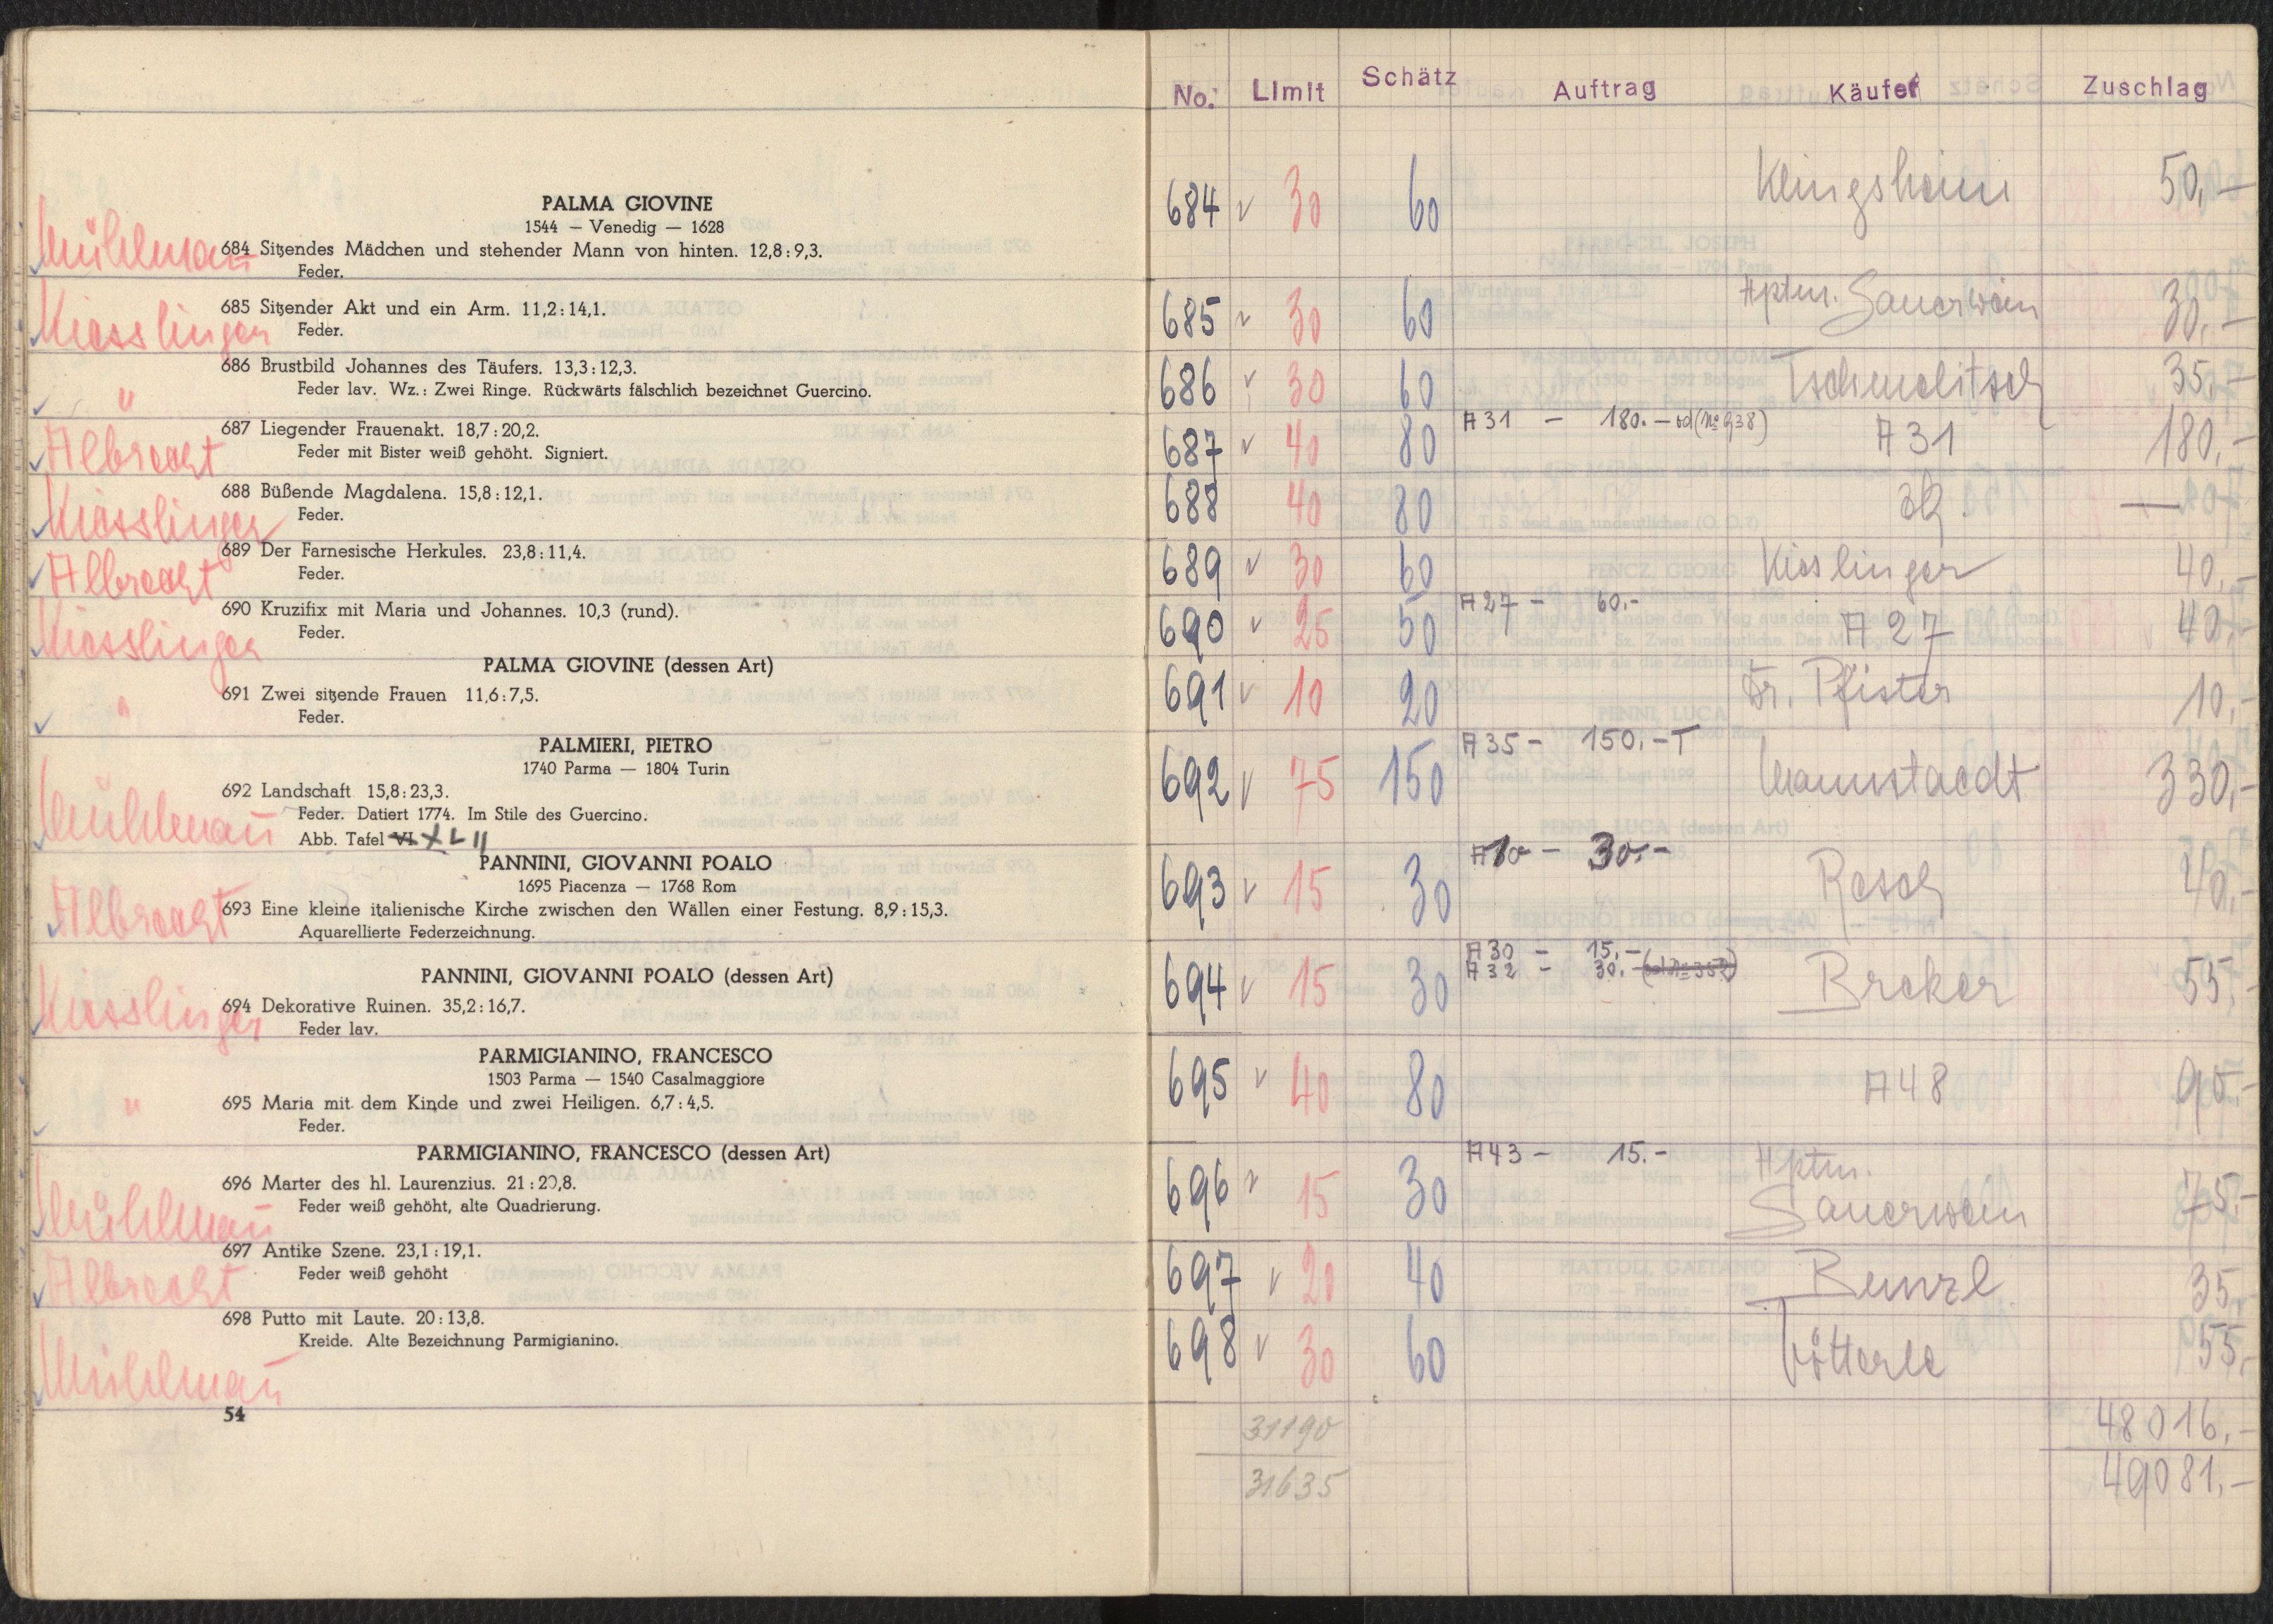 PALMA GIOVINE
1544 — Venedig — 1628
Mühlmann
684 Sitzendes Mädchen und stehender Mann von hinten. 12,8:9,3.
Feder.
Kiesslinger
685 Sitzender Akt und ein Arm. 11,2:14,1.
Feder.
686 Brustbild Johannes des Täufers. 13,3:12,3.
" Feder lav. Wz.: Zwei Ringe. Rückwärts fälschlich bezeichnet Guercino.
Albrecht
687 Liegender Frauenakt. 18,7:20,2.
Feder mit Bister weiß gehöht. Signiert.
Kiesslinger
688 Büßende Magdalena. 15,8:12,1.
Feder.
Albrecht
689 Der Farnesische Herkules. 23,8:11,4.
Feder.
Kiesslinger
690 Kruzifix mit Maria und Johannes. 10,3 (rund).
Feder.
PALMA GIOVINE (dessen Art)
" 691 Zwei sitzende Frauen 11,6:7,5.
Feder.
PALMIERI, PIETRO
1740 Parma — 1804 Turin
Mühlmann
692 Landschaft 15,8:23,3.
Feder. Datiert 1774. Im Stile des Guercino.
Abb. Tafel VI. XLII
PANNINI, GIOVANNI POALO
1695 Piacenza — 1768 Rom
Albrecht
693 Eine kleine italienische Kirche zwischen den Wällen einer Festung. 8,9:15,3.
Aquarellierte Federzeichnung.
PANNINI, GIOVANNI POALO (dessen Art)
Kiesslinger
694 Dekorative Ruinen. 35,2:16,7.
Feder lav.
PARMIGIANINO, FRANCESCO
1503 Parma — 1540 Casalmaggiore
" 695 Maria mit dem Kinde und zwei Heiligen. 6,7:4,5.
Feder.
PARMIGIANINO, FRANCESCO (dessen Art)
Mühlmann
696 Marter des hl. Laurenzius. 21:20,8.
Feder weiß gehöht, alte Quadrierung.
Albrecht
697 Antike Szene. 23,1:19,1.
Feder weiß gehöht
Mühlmann
698 Putto mit Laute. 20:13,8.
Kreide. Alte Bezeichnung Parmigianino.
54
No. Limit Schätz Auftrag Käufer Zuschlag
684 v 30 60 Klingsheim 50,—
685 v 30 60 Hptm. Sauerwein 30,—
686 v 30 60 Tschmelitsch 35,—
687 v 40 80 A31 — 180.— od (No 938) A 31 180,—
688 40 80 —
689 v 30 60 Kieslinger 40,—
690 v 25 50 A27 — 60.- A 27 40,—
691 v 10 20 Dr. Pfister 10,—
692 v 75 150 A35 — 150.—T Mannstaedt 330,—
693 v 15 30 A10 — 30.— Resch 40,—
694 v 15 30 A30 — 15,— Breker 55,—
A32 — 30.—
695 v 40 80 A48 90.—
696 v 15 30 A43 — 15.— Hptm. Sauerwein 75.—
697 v 20 40 Benzl 35,—
698 v 30 60 55,—
31190 48016,—
31635 49081,—